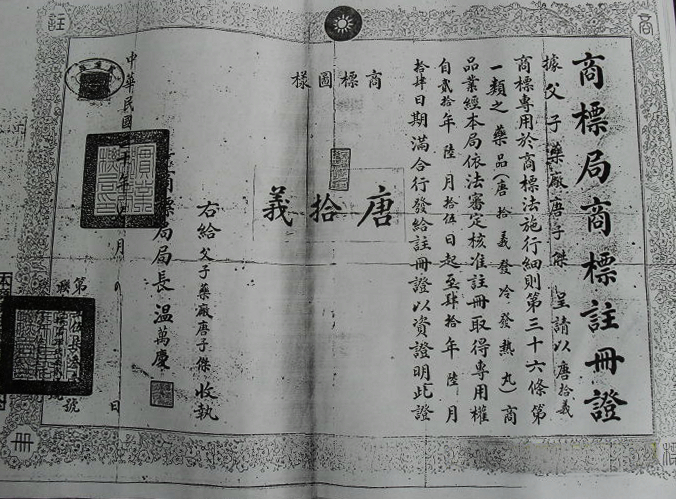 商標局商標註冊證
據父子藥廠唐子傑呈請以唐拾義
商標專用於商標法施行細則第三十六條第
一類之藥品(唐拾義發冷發熱丸)商
品業經本局依法審定核准註冊取得專用權
自貳拾年陸月拾伍日起至肆拾年陸月
拾肆日期滿合行發給註冊證以資證明此證
商標圖樣
唐拾義
右給父子藥廠唐子傑收執
商標局局長溫萬慶
中華民國二十年 月 日
第 號
商
註
冊